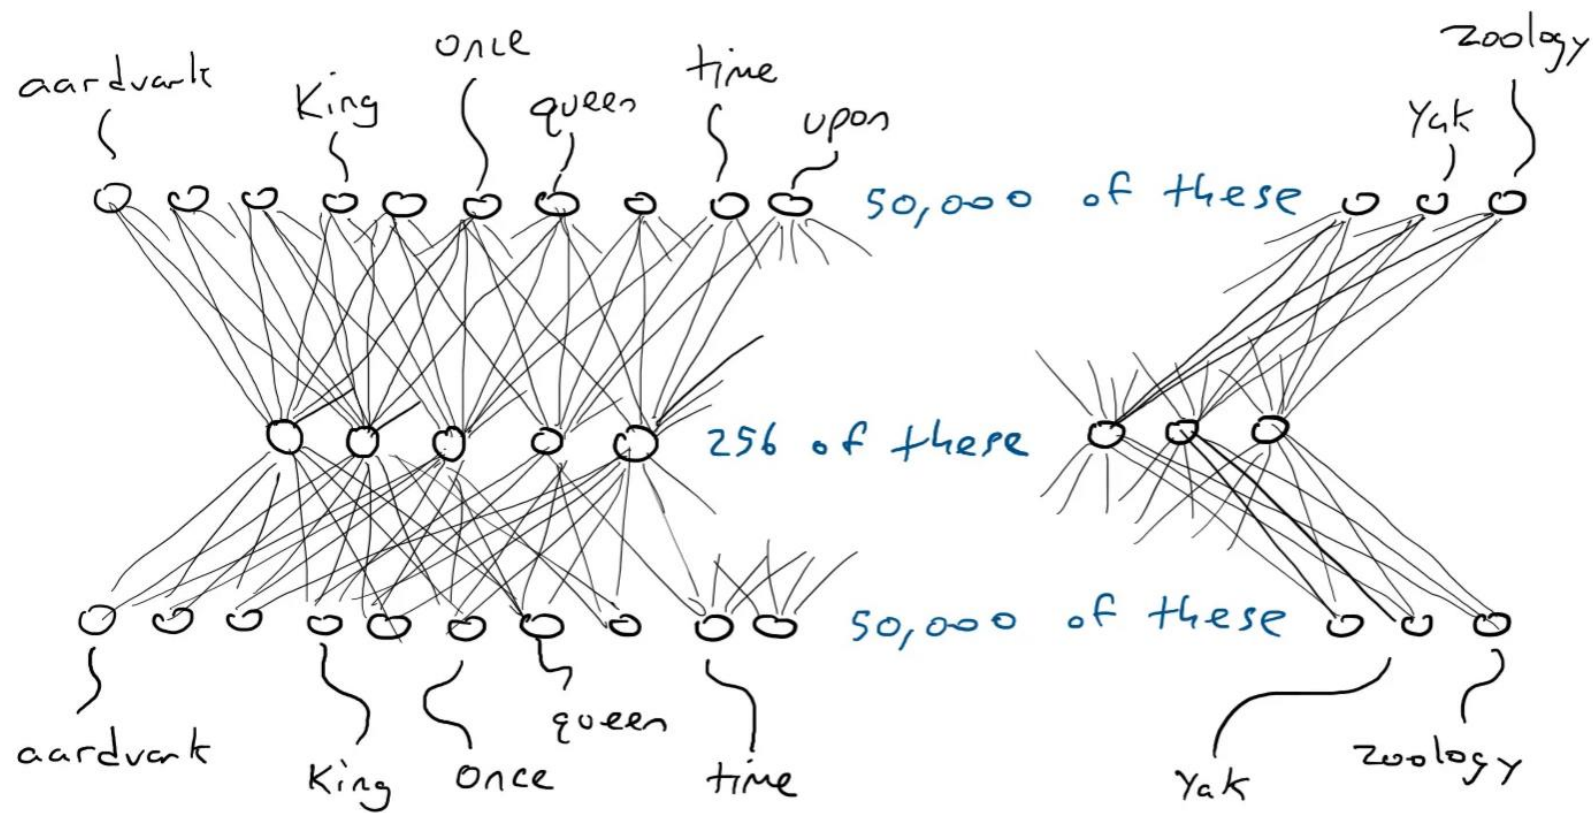 aardvark
King
once
queen
time
upon
Yak
zoology
50,000 of these
256 of these
50,000 of these
aardvark
King
Once
queen
time
Yak
zoology